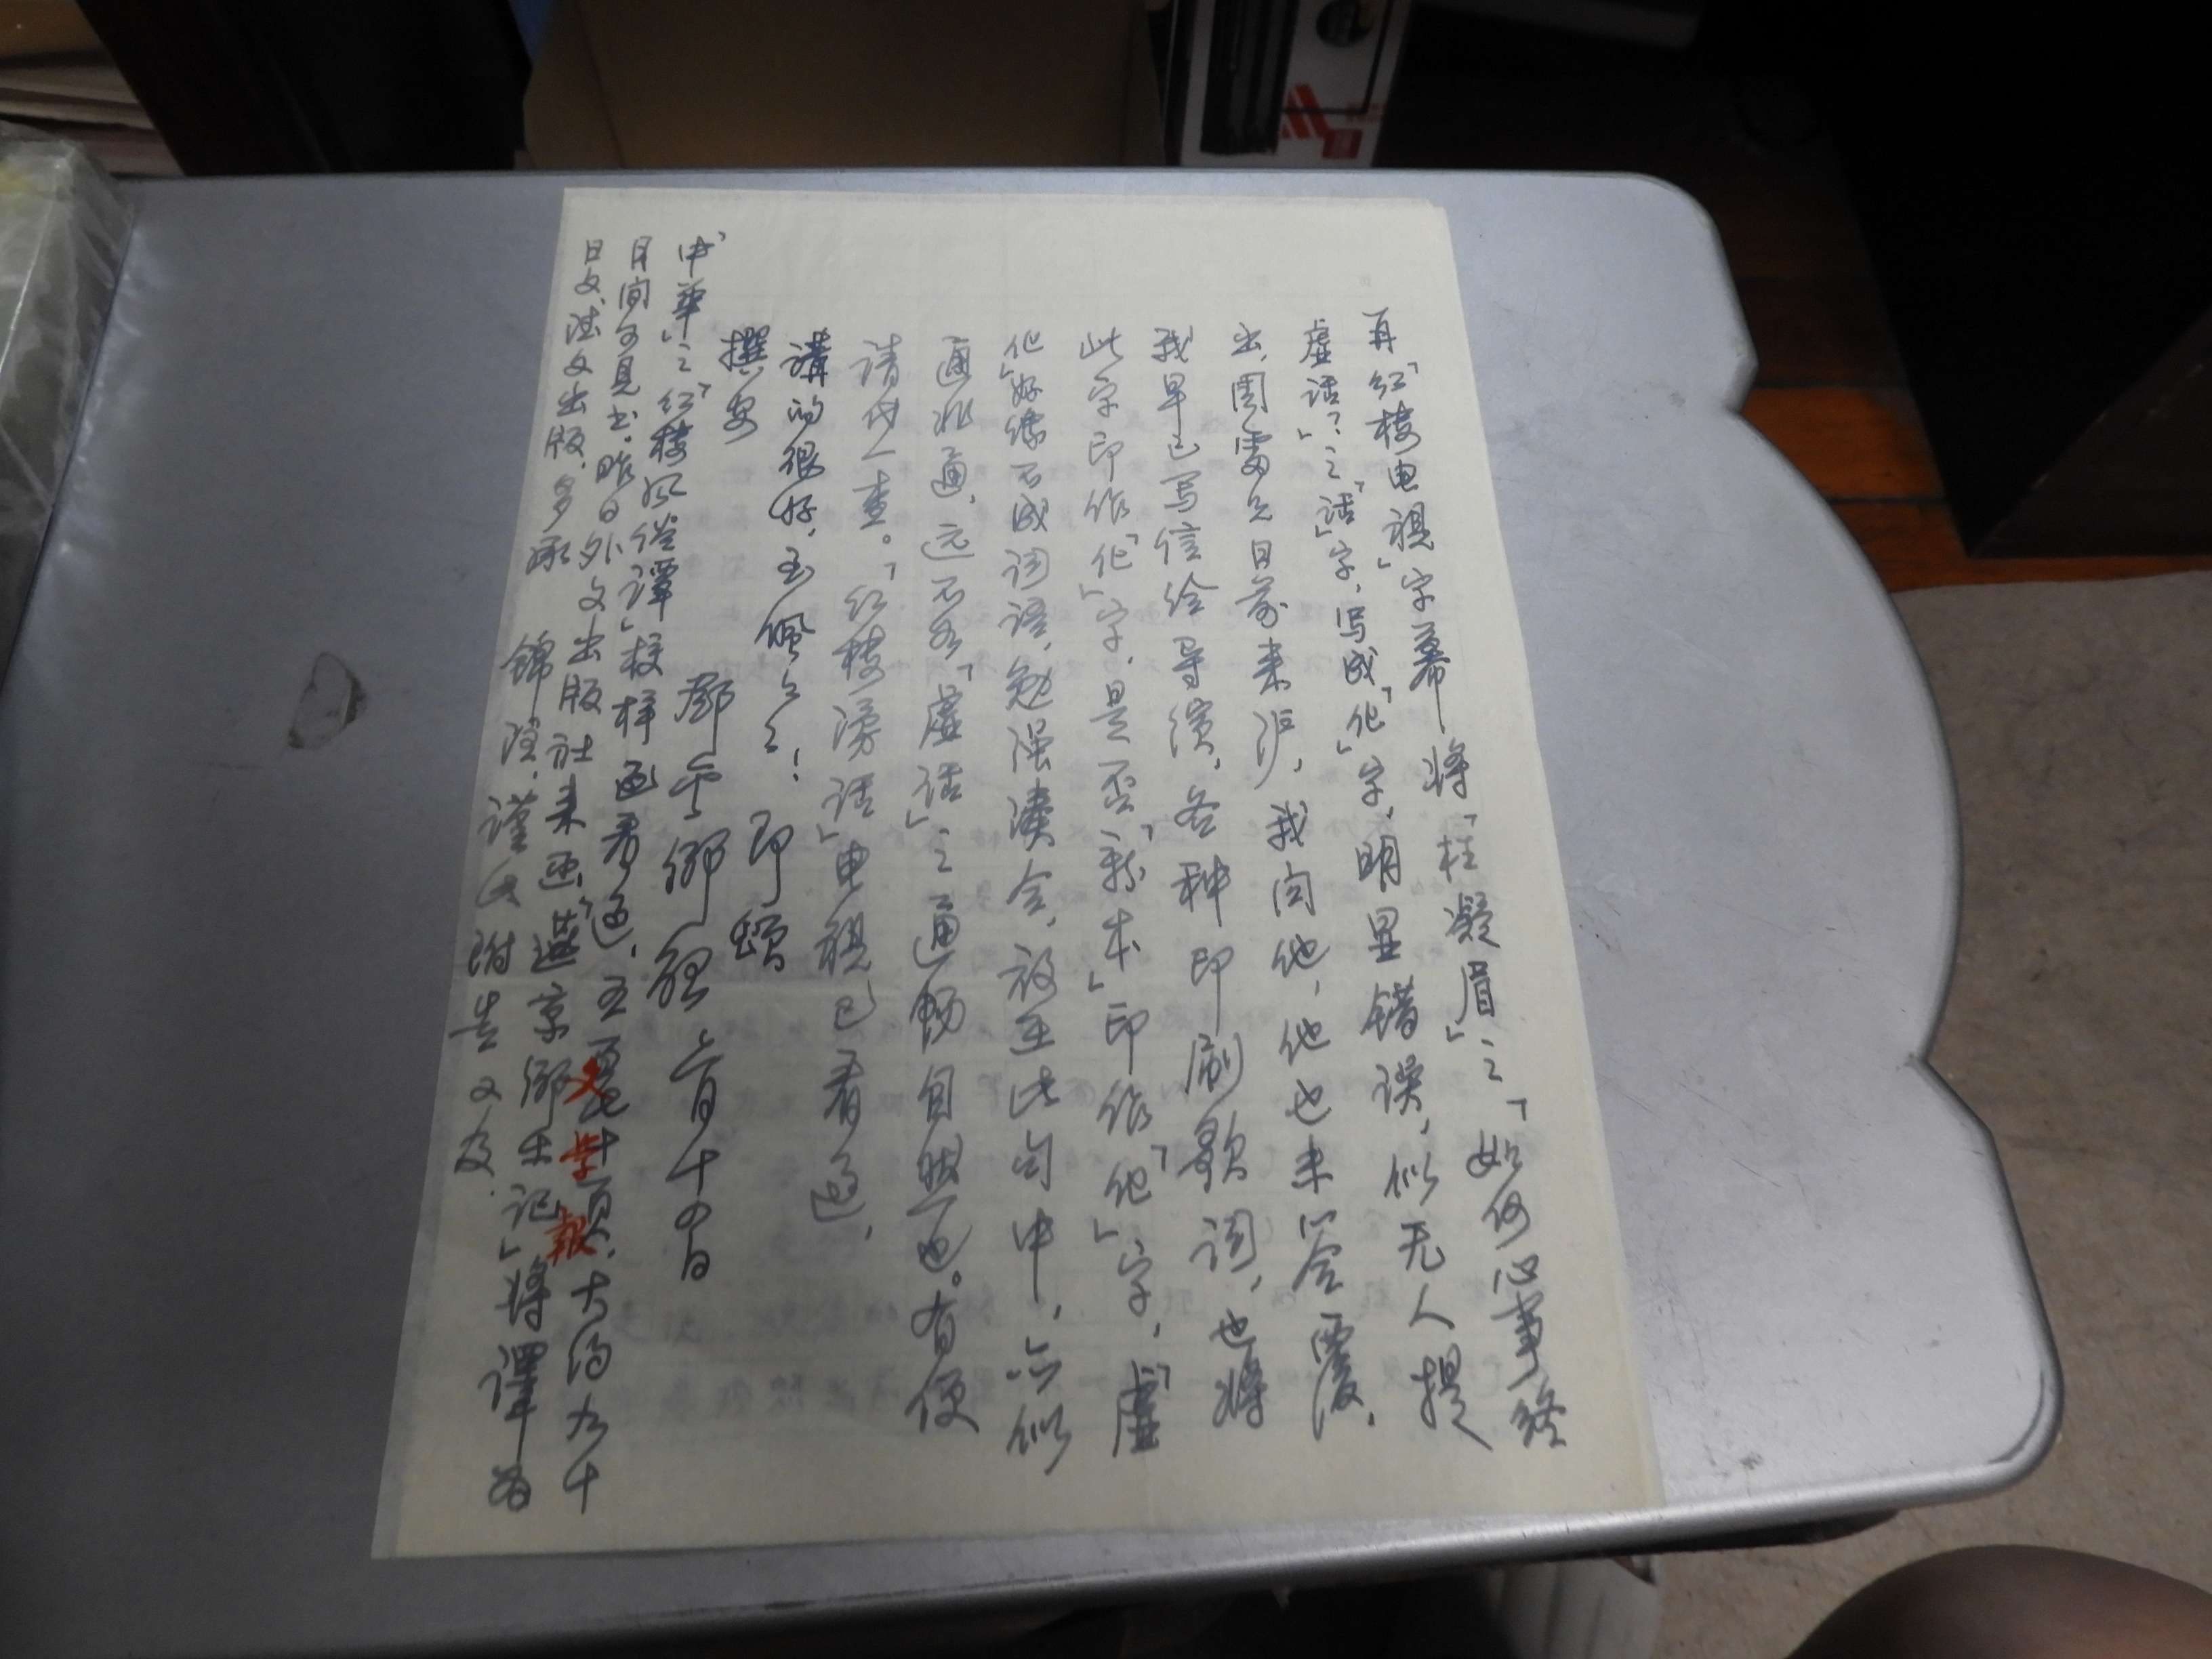 再「红楼电视」字幕将「枉凝眉」之「如何心事终
虚话？」之「话」字，写成「化」字，明显错误，似无人提
出，周雷兄日前来沪，我问他，他也未答覆，
我早已写信给导演，各种印刷歌词，也将
此字印作「化」字，是否「新本」印作「化」字，「虚
化」好像不成词语，勉强凑合，放在此句中，亦似
通非通，远不如「虚话」之通畅自然也。有便
请代一查。「红楼漫话」电视已看过，
講的很好，玉佩云云！即頌
撰安
鄧雲鄉 六月十四日
「中华」之「红楼风俗譚」校样函看过，五百七十頁，大约九十
月间可見书。昨日外文出版社来函，「燕京鄉土记」将譯為
日文、法文出版，多承 錦注，謹此附告 又及
文学報